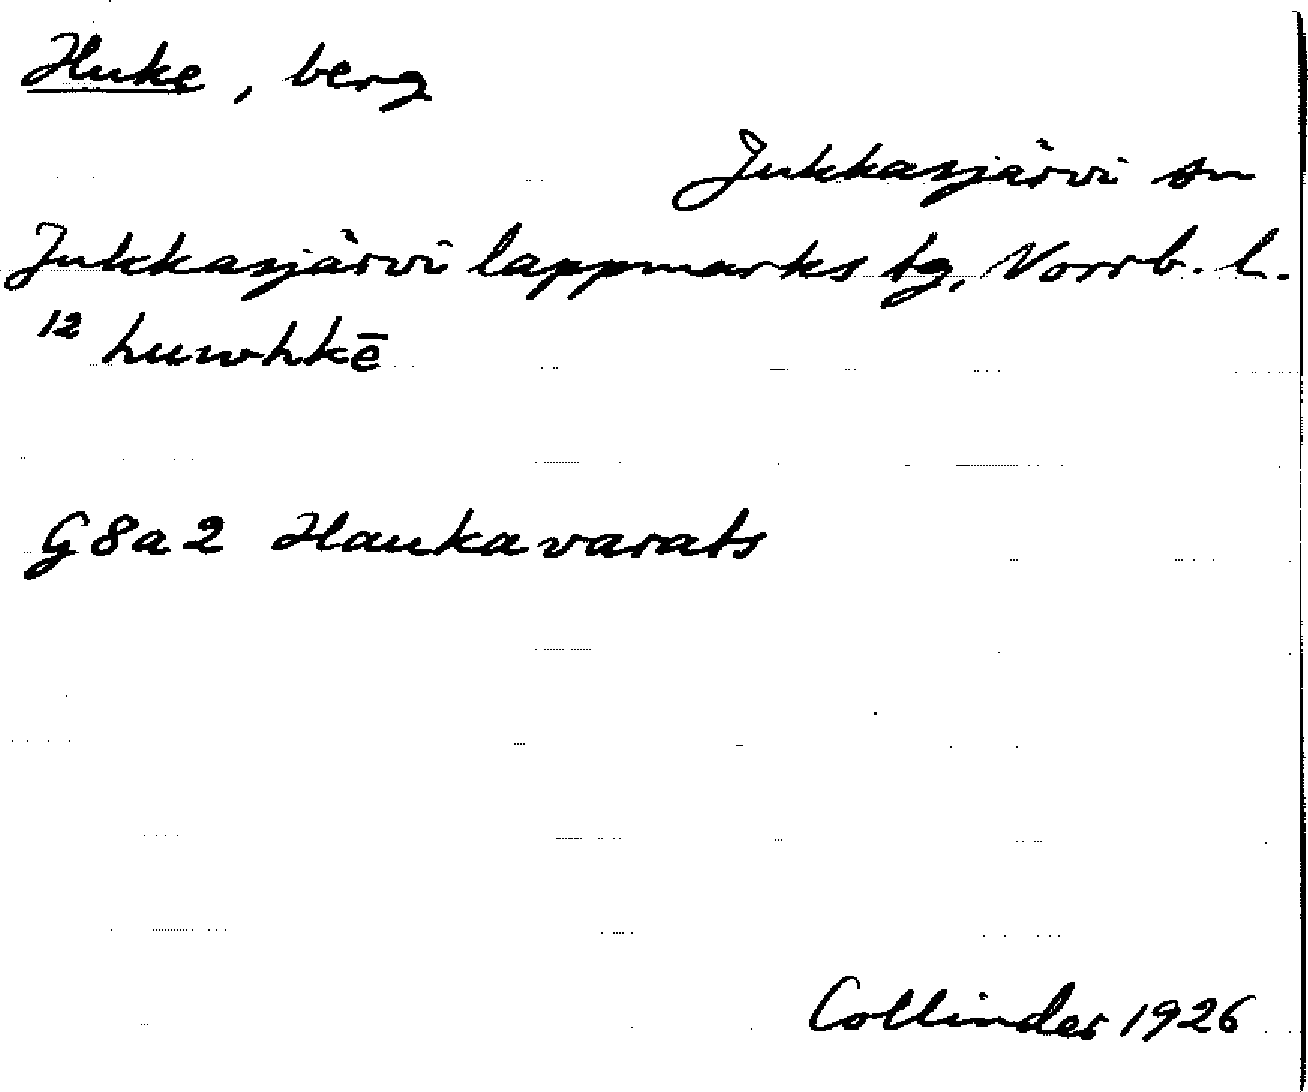 Huke, berg
Jukkasjärvi sn
Jukkasjärvi lappmarks tg, Norrb. l.
12 huwhkē
G8a2 Haukavarats
Collinder 1926